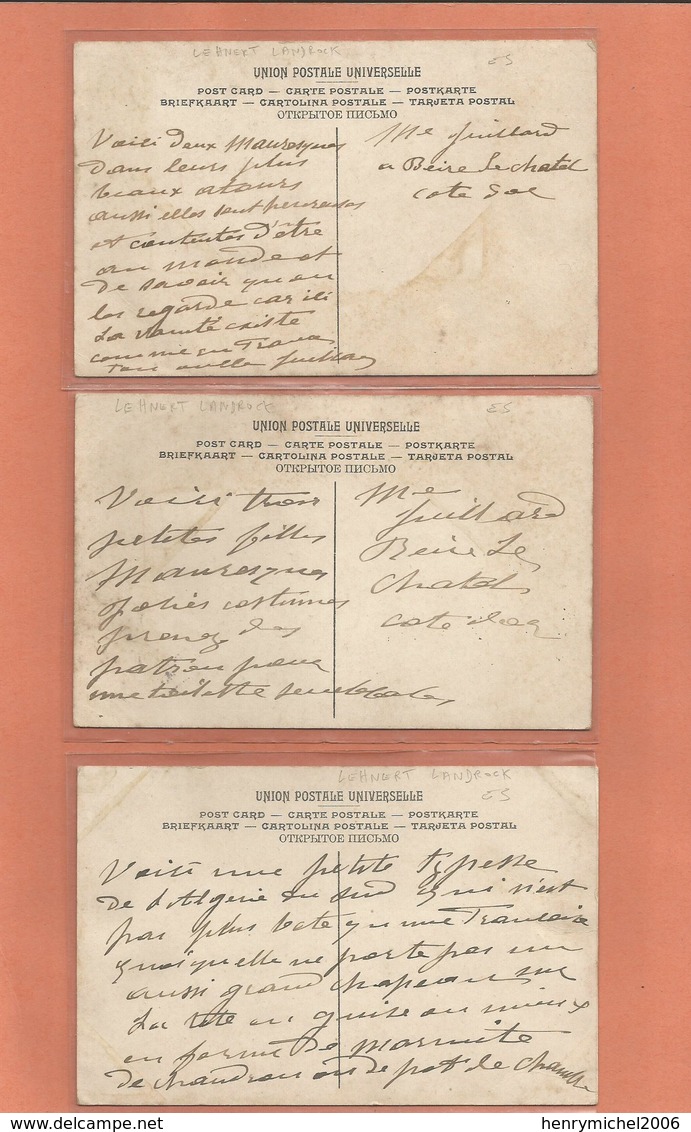 LEHNERT LANDROCK
ES
UNION POSTALE UNIVERSELLE
POST CARD — CARTE POSTALE — POSTKARTE
BRIEFKAART — CARTOLINA POSTALE — TARJETA POSTAL
ОТКРЫТОЕ ПИСЬМО
Voici deux Mauresques
dans leurs plus
beaux atours
aussi elles sont heureuses
et contentes d'être
au monde et
de savoir qu on
les regarde car ici
la vanité existe
comme en France
Me Juillard
a Beire le chatel
cote d or
LEHNERT LANDROCK
ES
UNION POSTALE UNIVERSELLE
POST CARD — CARTE POSTALE — POSTKARTE
BRIEFKAART — CARTOLINA POSTALE — TARJETA POSTAL
ОТКРЫТОЕ ПИСЬМО
Voici trois
petites filles
Mauresques
jolies costumes
prenez des
patron pour
une toilette
Me
Juillard
Beire Le
Chatel
cote d or
LEHNERT LANDROCK
ES
UNION POSTALE UNIVERSELLE
POST CARD — CARTE POSTALE — POSTKARTE
BRIEFKAART — CARTOLINA POSTALE — TARJETA POSTAL
ОТКРЫТОЕ ПИСЬМО
Voici une petite
de l Algerie du sud qui n'est
pas plus bete qu une Francaise
quoiquelle ne porte pas un
aussi grand chapeau sur
La tete en guise ou mieux
en forme de marmite
de chaudron ou de pot de chambre
henrymichel2006